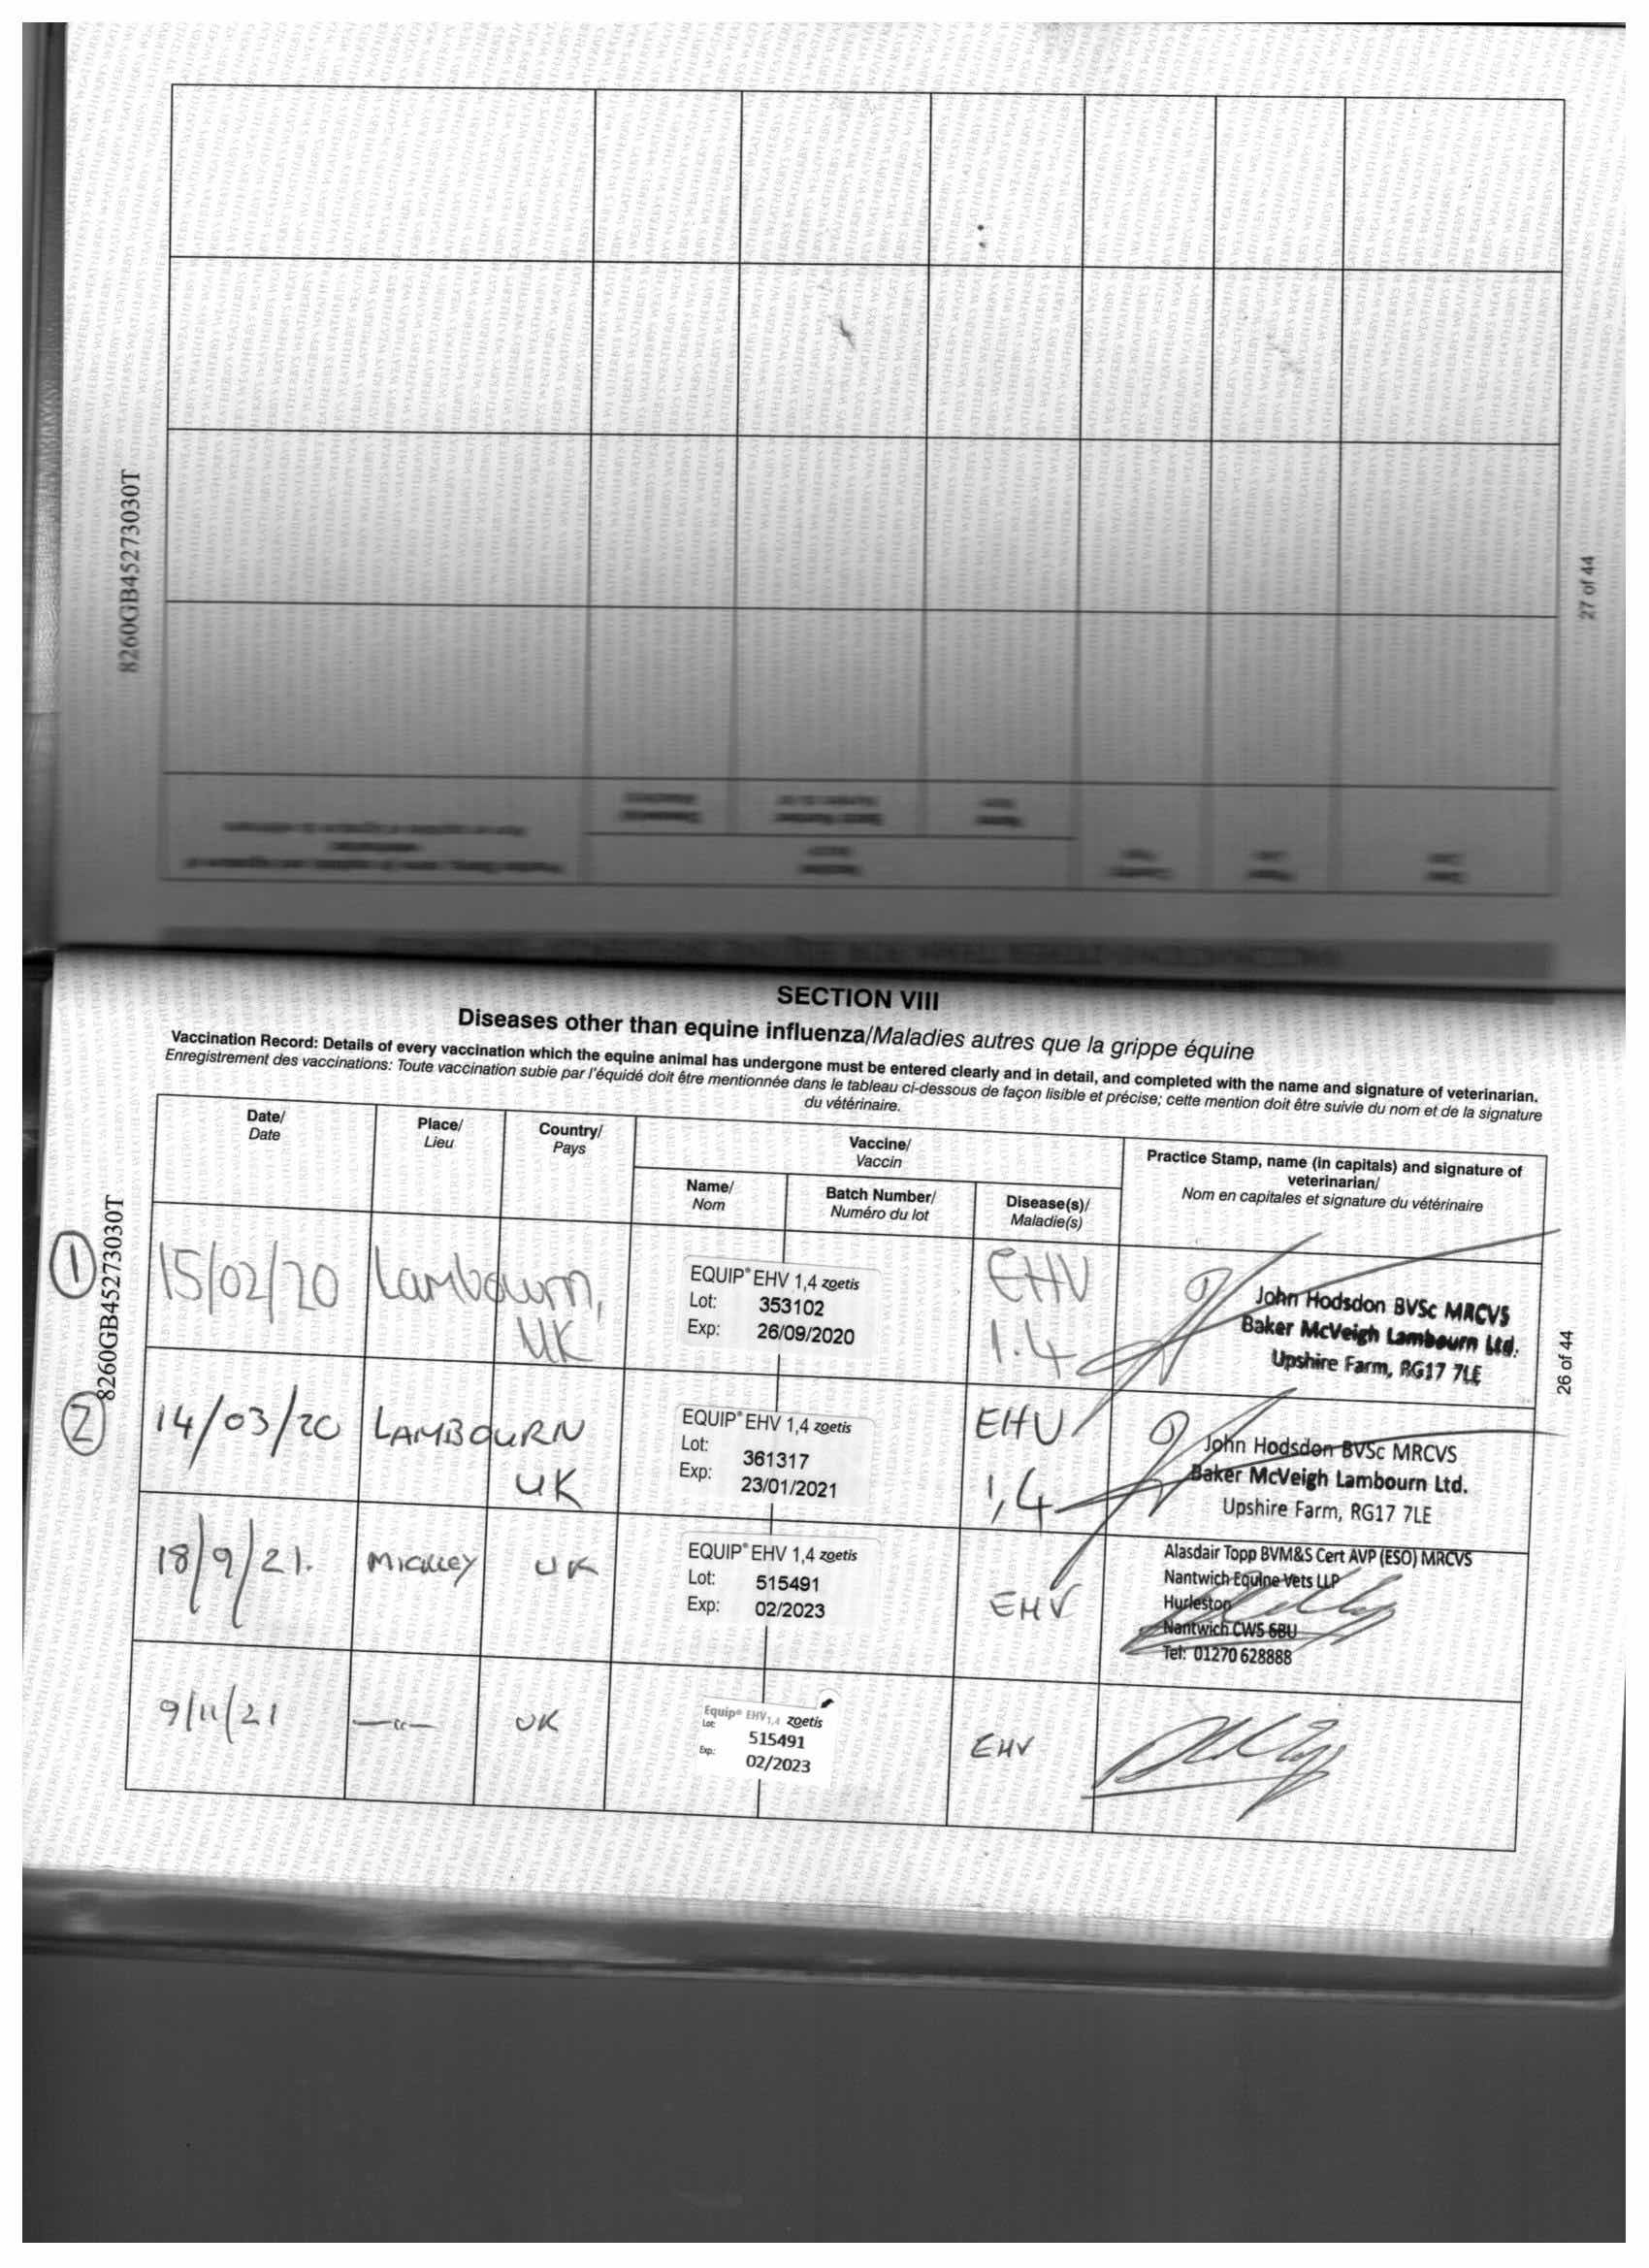 8260GB45273030T
27 of 44
SECTION VIII
Diseases other than equine influenza/Maladies autres que la grippe équine
Vaccination Record: Details of every vaccination which the equine animal has undergone must be entered clearly and in detail, and completed with the name and signature of veterinarian.
Enregistrement des vaccinations: Toute vaccination subie par l'équidé doit être mentionnée dans le tableau ci-dessous de façon lisible et précise; cette mention doit être suivie du nom et de la signature
du vétérinaire.
Date/
Date
Place/
Lieu
Country/
Pays
Vaccine/
Vaccin
Name/
Nom
Batch Number/
Numéro du lot
Disease(s)/
Maladie(s)
Practice Stamp, name (in capitals) and signature of
veterinarian/
Nom en capitales et signature du vétérinaire
8260GB45273030T
26 of 44
1
15/02/20
Lambourn,
UK
EQUIP® EHV 1,4 zoetis
Lot: 353102
Exp: 26/09/2020
EHV
1.4
John Hodsdon BVSc MRCVS
Baker McVeigh Lambourn Ltd.
Upshire Farm, RG17 7LE
2
14/03/20
LAMBOURN
UK
EQUIP® EHV 1,4 zoetis
Lot: 361317
Exp: 23/01/2021
EHV
1,4
John Hodsdon BVSc MRCVS
Baker McVeigh Lambourn Ltd.
Upshire Farm, RG17 7LE
18/9/21.
MICKLEY
UK
EQUIP® EHV 1,4 zoetis
Lot: 515491
Exp: 02/2023
EHV
Alasdair Topp BVM&S Cert AVP (ESO) MRCVS
Nantwich Equine Vets LLP
Hurleston
Nantwich CW5 6BU
Tel: 01270 628888
9/11/21
—"—
UK
Equip® EHV 1,4 zoetis
Lot: 515491
Exp: 02/2023
EHV